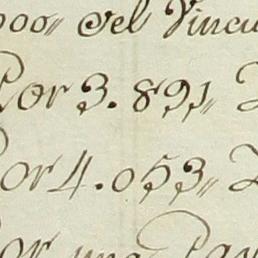 000,, del Vincu
Por 3.891,,
Por 4.053,,
Por una Pa